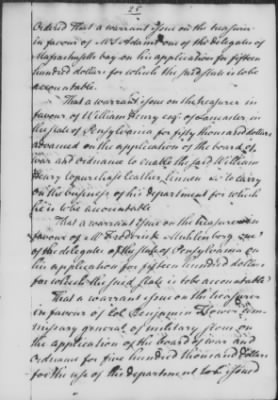 25
Ordered That a warrant issue on the treasurer
in favour of Mr S Adams one of the delegates of
Massachusetts bay on his application for fifteen
hundred dollars for which the said state is to be
accountable.
That a warrant issue on the treasurer in
favour of William Henry esqr of Lancaster in
the state of Pensylvania for fifty thousand dollars
advanced on the application of the board of
war and ordnance to enable the said William
Henry to purchase leather, linnen &c to carry
on the business of his department for which
he is to be accountable
That a warrant issue on the treasurer in
favour of Mr Frederick Muhlenberg one
of the delegates of the state of Pensylvania on
his application for fifteen hundred dollars
for which the said State is to be accountable
That a warrant issue on the treasurer
in favour of Col Benjamin Flower com
missary general of military stores on
the application of the board of war and
ordnance for five hundred thousand dollars
for the use of the department to be issued